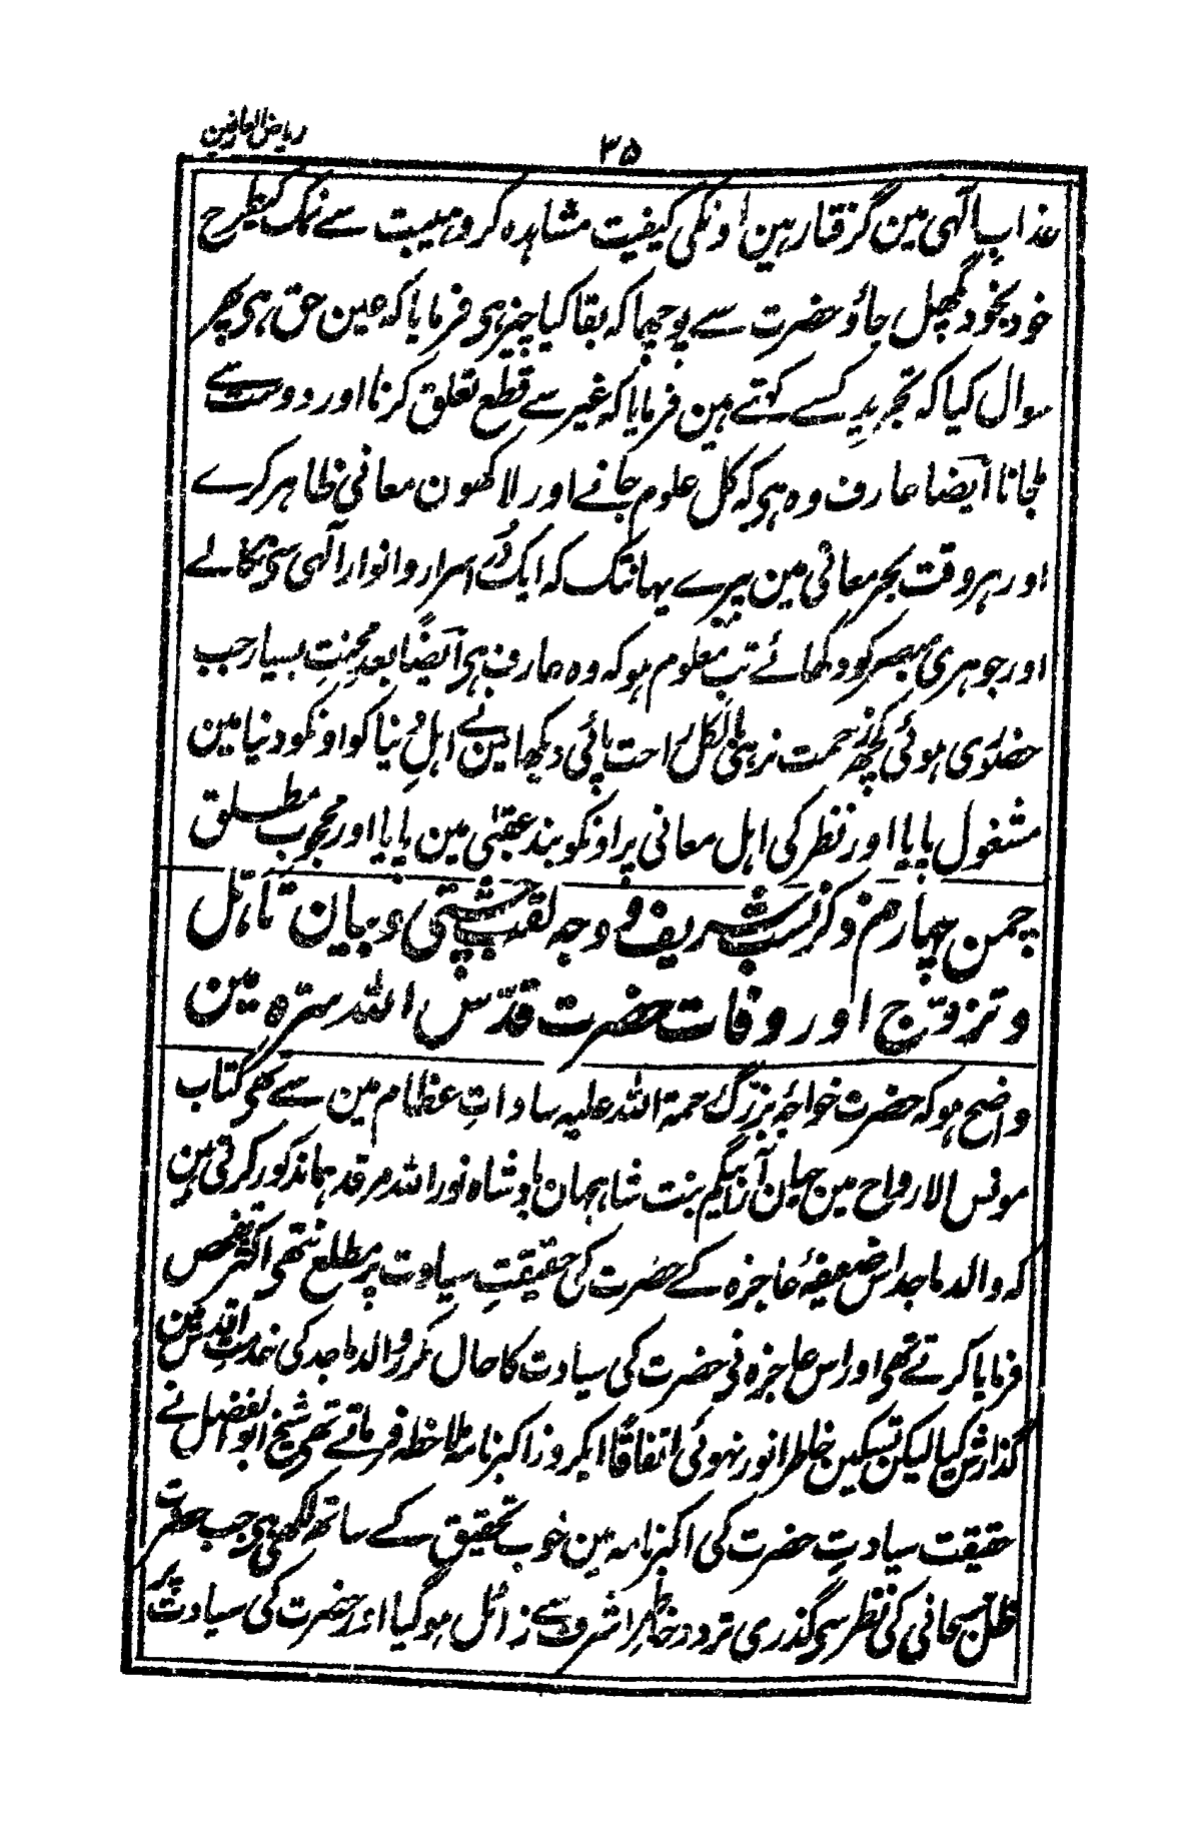 ریاض العارفین
۳۵
عذابِ الٰہی مین گرفتار ہین اونکی کیفیت مشاہدہ کرو ہیبت سے نمک کیطرح
خود بخود پگھل جاؤ حضرت سے پوچھا کہ بقا کیا چیز ہی فرمایا کہ عین حق ہی پھر
سوال کیا کہ تجرید کسے کہتے ہین فرمایا کہ غیر سے قطع تعلق کرنا اور دوست سے
ملجانا ایضا عارف وہ ہی کہ کل علوم جانے اور لاکھون معانی ظاہر کرے
اور ہر وقت بحر معانی مین پیرے یہانتک کہ ایک دُر اسرار و انوار الٰہی سی نکالے
اور جوہری مبصر کو دکھائے تب معلوم ہو کہ وہ عارف ہی ایضًا بعد محنتِ بسیار جب
حضوری ہوئی کچھ زحمت نرہی بالکل راحت پائی دیکھا مین نے اہلِ دنیا کو اونکو دنیا مین
مشغول پایا اور نظر کی اہل معانی پر اونکو بند عقبٰی مین پایا اور محجوب مطلق
چمن چہارم ذکر نسب شریف و وجہ لقب چشتی و بیان تاہل
و تزوّج اور وفات حضرت قدّس اللہ سرّہ مین
واضح ہو کہ حضرت خواجۂ بزرگ رحمۃ اللہ علیہ ساداتِ عظام مین سے تھی کتاب
مونس الارواح مین جہان آرا بیگم بنت شاہجہان بادشاہ نور اللہ مرقدہما مذکور کرتی ہین
کہ والد ماجد اس ضعیفۂ عاجزہ کے حضرت کی حقیقتِ سیادت پر مطلع نتھی اکثر تفحص
فرمایا کرتے تھی اور اس عاجزہ نی حضرت کی سیادت کا حال مکرر والد ماجد کی خدمتِ اقدس مین
گذارش کیا لیکن تسکین خاطر انور نہوئی اتفاقًا ایکروز اکبر نامہ ملاحظہ فرماتے تھی شیخ ابوالفضل نے
حقیقت سیادتِ حضرت کی اکبر نامہ مین خوب تحقیق کے ساتھ لکھی ہی جب حضرت
ظل سبحانی کی نظر سی گذری تردد خاطر اشرف سے زائل ہو گیا اور حضرت کی سیادت پر